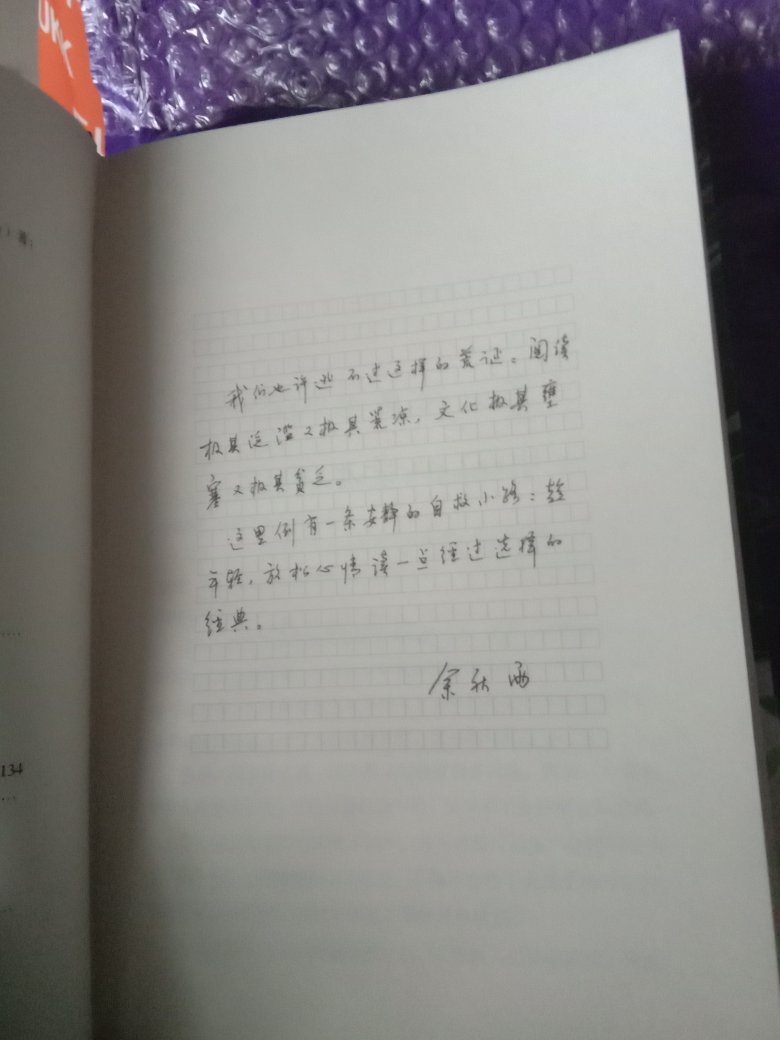 我们也许逃不过这样的荒诞。阅读
极其泛滥又极其荒凉，文化极其壅
塞又极其贫乏。
这里倒有一条安静的自救小路：趁
年轻，放松心情读一点经过选择的
经典。
余秋雨
）著：
134